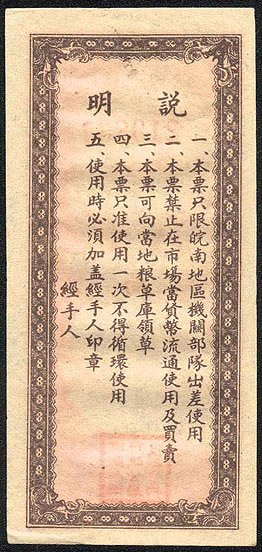 說明
一、本票只限皖南地區機關部隊出差使用
二、本票禁止在市場當貨幣流通使用及買賣
三、本票可向當地粮草庫領草
四、本票只准使用一次不得循環使用
五、使用時必須加盖經手人印章
經手人